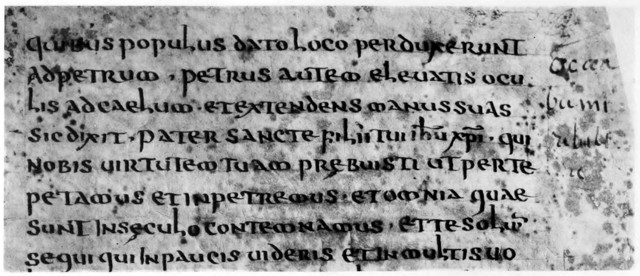 quibus populus dato loco perduxerunt
ad petrum · petrus autem elevatis ocu
lis ad caelum · et extendens manus suas
sic dixit · pater sancte filii tui ihu xpi · qui
nobis uirtutem tuam prebuisti ut per te
petamus et inpetremus · et omnia quae
sunt in seculo contemnamus · et te solum
sequi qui in paucis uideris et in multis uo